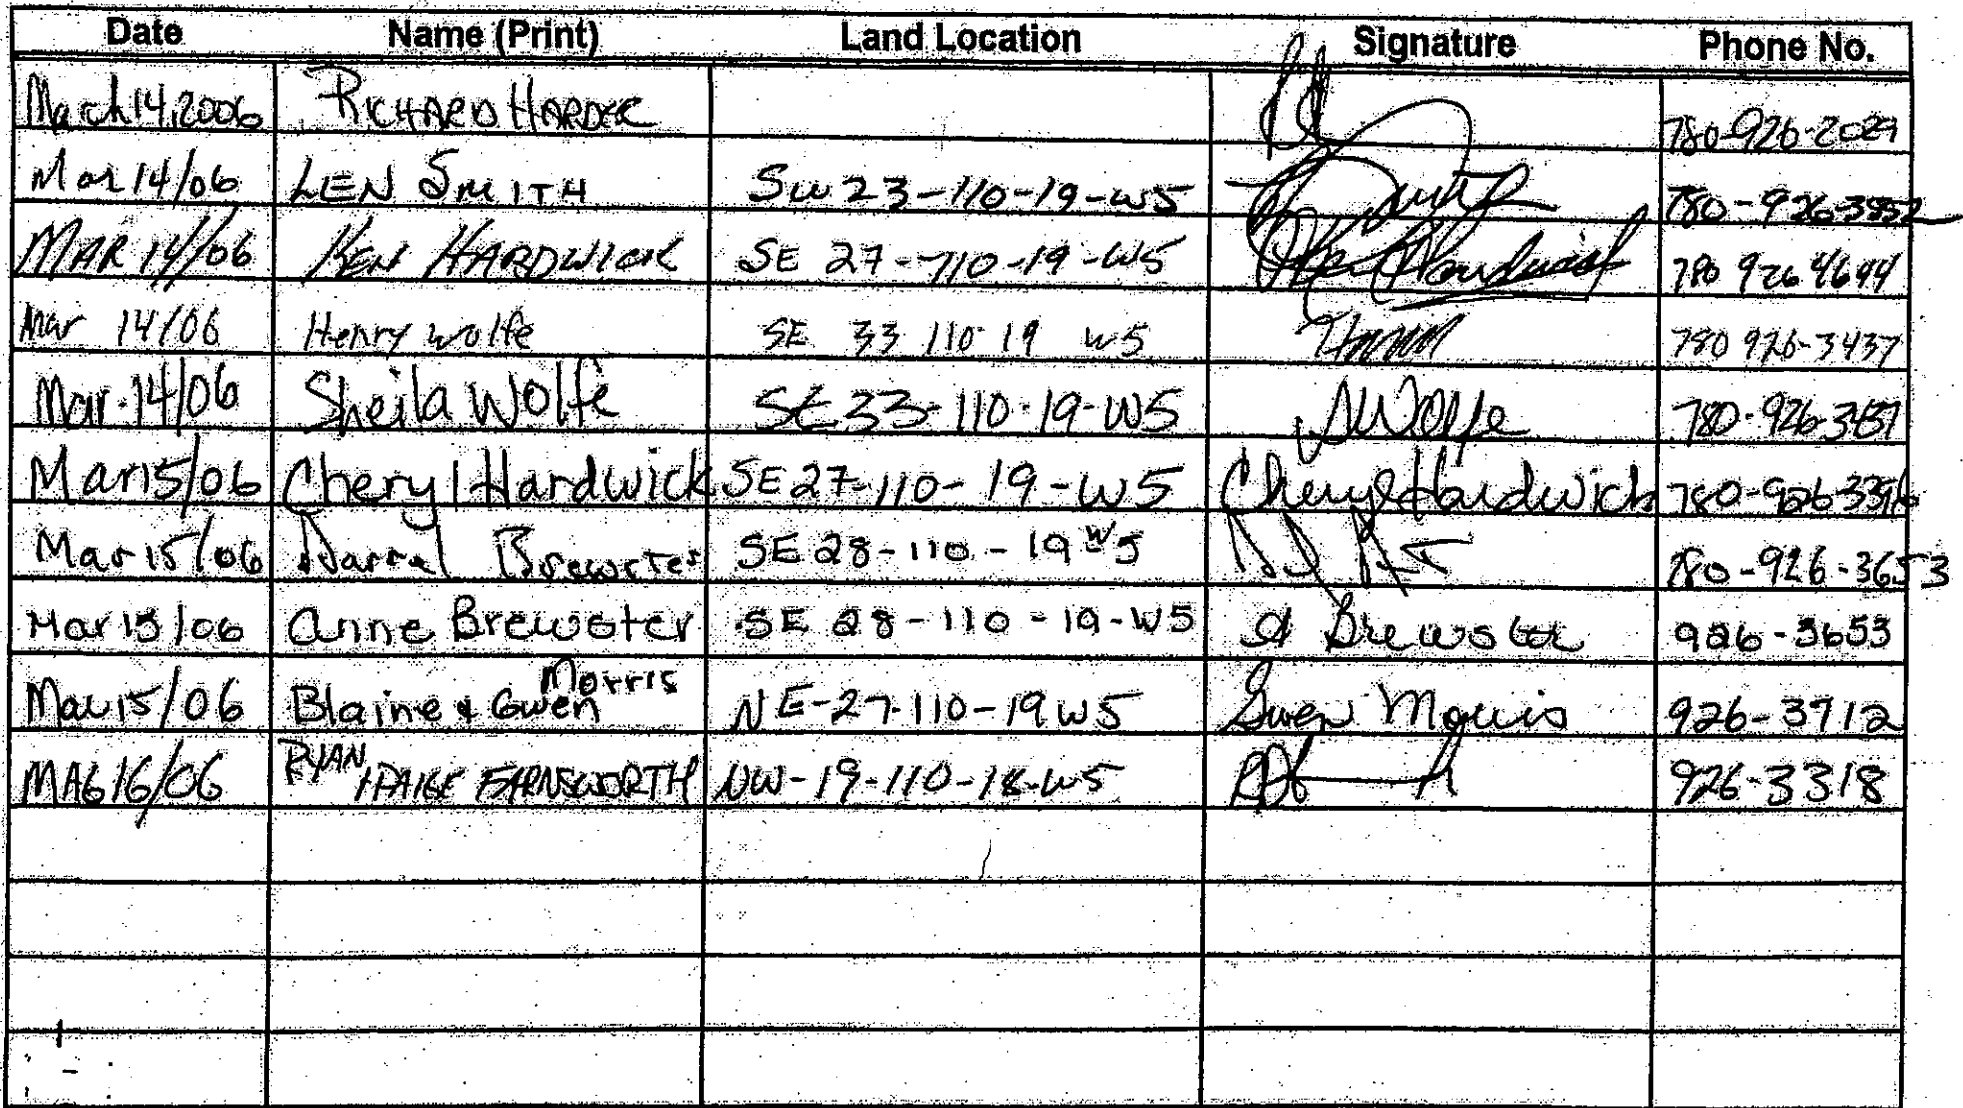 Date Name (Print) Land Location Signature Phone No.
March 14, 2006 RICHARD HARDER 780-926-2029
Mar 14/06 LEN SMITH SW 23-110-19-W5 780-926-3852
MAR 14/06 KEN HARDWICK SE 27-110-19-W5 Ken Hardwick 780 926 4644
Mar 14/06 Henry Wolfe SE 33 110 19 W5 780 926-3437
Mar 14/06 Sheila Wolfe SE 33-110-19-W5 S Wolfe 780-926-
Mar 15/06 Cheryl Hardwick SE 27-110-19-W5 Cheryl Hardwick 780-926-3396
Mar 15/06 Darral Brewster SE 28-110-19 W5 780-926-3653
Mar 15/06 Anne Brewster SE 28-110-19-W5 A Brewster 926-3653
Mar 15/06 Blaine & Gwen Morris NE-27-110-19 W5 Gwen Morris 926-3712
MAR 16/06 RYAN / PAIGE FARNSWORTH NW-19-110-18-W5 926-3318